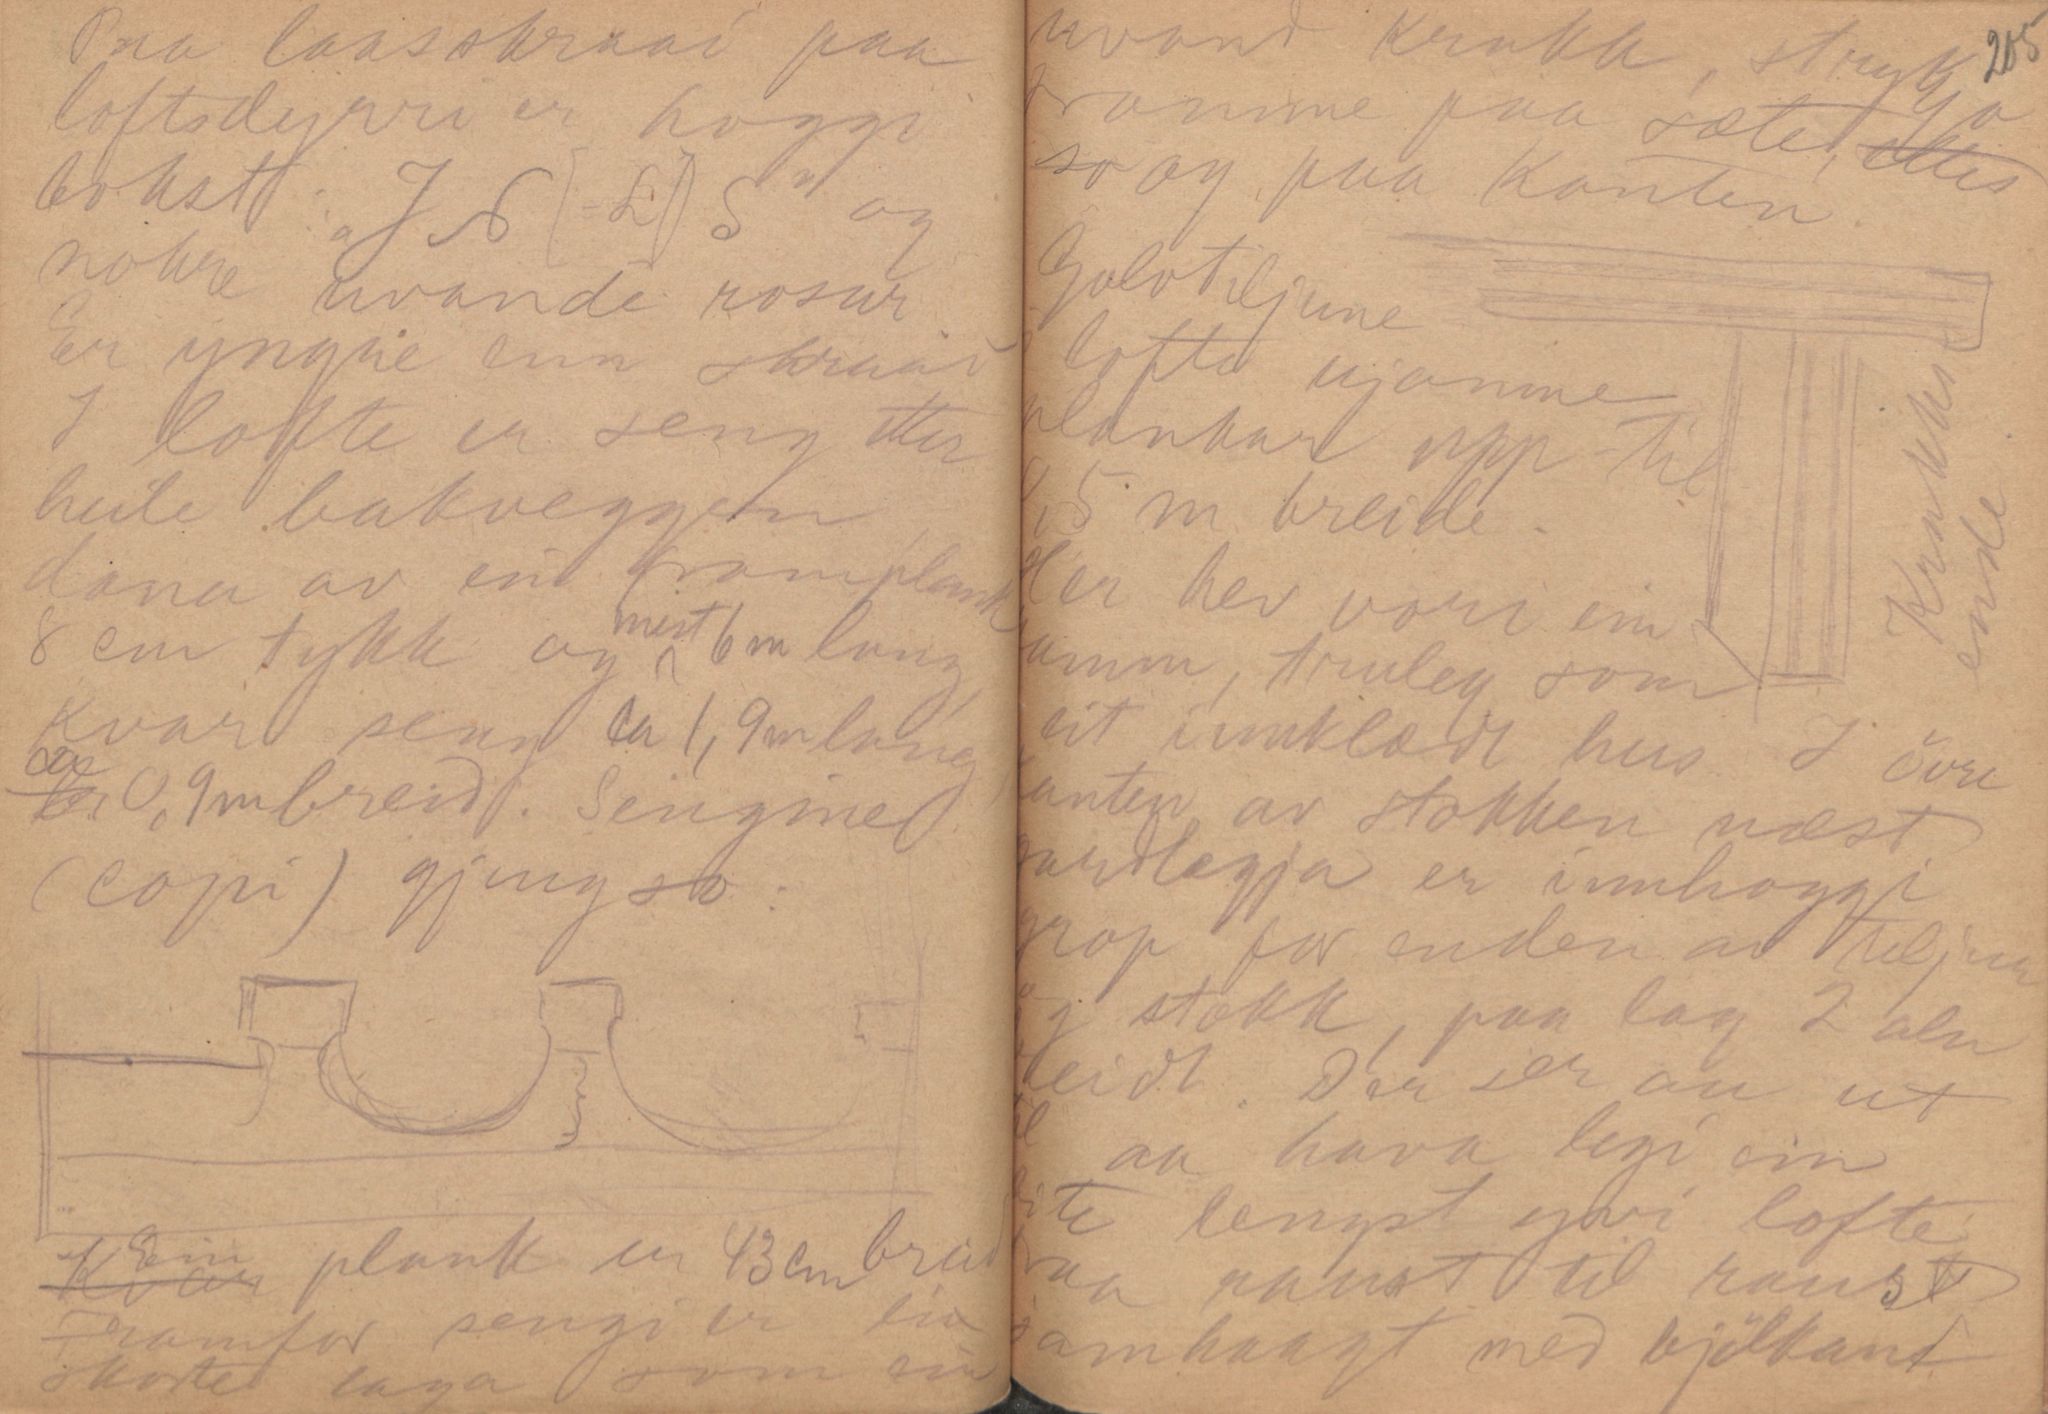 Paa laasskraai paa
loftsdyrri er hoggi
bokst: "J N [-L] S" og
nokre uvande rosur
Er yngrie enn skraai
I lofte er seng etter
heile bakveggen,
dana av ein framplank
8 cm tykk og mest 6 m lang,
kvar seng ca 1,9 m lang,
ca 0,9 m breid. Sengine
(copi) gjeng so:
Ein plank er 43 cm breid
Framfor sengi er ein
skorte laga som ein
205
uvand krakk, strykja
framme paa sæte,
so og paa kanten.
Golvtiljune
i lofte ujamne
plankar upp-til
0,5 m breide.
Der hev vori ein
ramm, truleg som
eit innklædt hus. I övre
kanten av stokken næst
vardlægja er innhoggi
grop for enden av tiljur
og stokk, paa lag 2 aln
leidt. Der ser au ut
til aa hava legi ein
bite lengst yvi lofte
fraa raust til raust
samhaagt med bjölkane
Krakken
ende